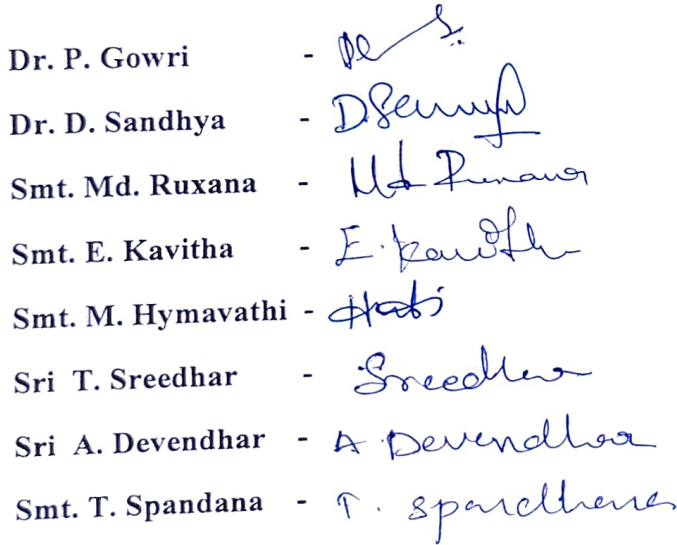 Dr. P. Gowri -
Dr. D. Sandhya - D.
Smt. Md. Ruxana - Md
Smt. E. Kavitha - E. Kavitha
Smt. M. Hymavathi -
Sri T. Sreedhar - Sreedhar
Sri A. Devendhar - A Devendhar
Smt. T. Spandana - T. Spandhana